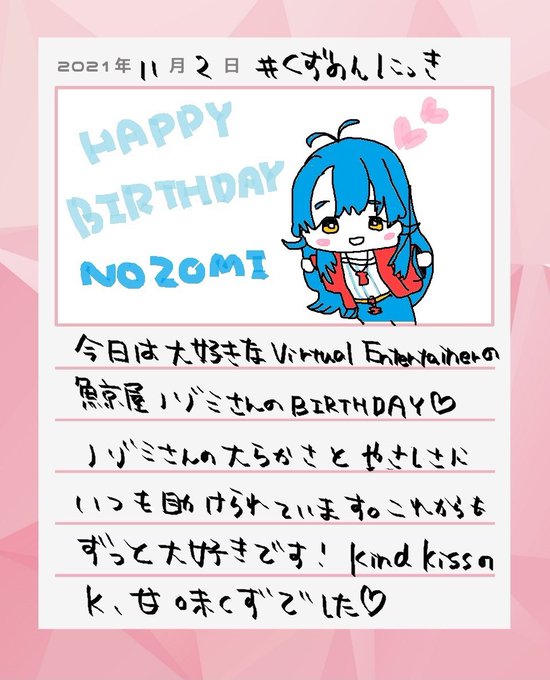 2021年 11月 2日 #くずめんにっき
HAPPY
BIRTHDAY
NOZOMI
今日は大好きなVirtual Entertainerの
魚京屋ノゾミさんのBIRTHDAY♡
ノゾミさんの大らかさとやさしさに
いつも助けられています。これからも
ずっと大好きです! kind kissの
K、甘味くずでした♡